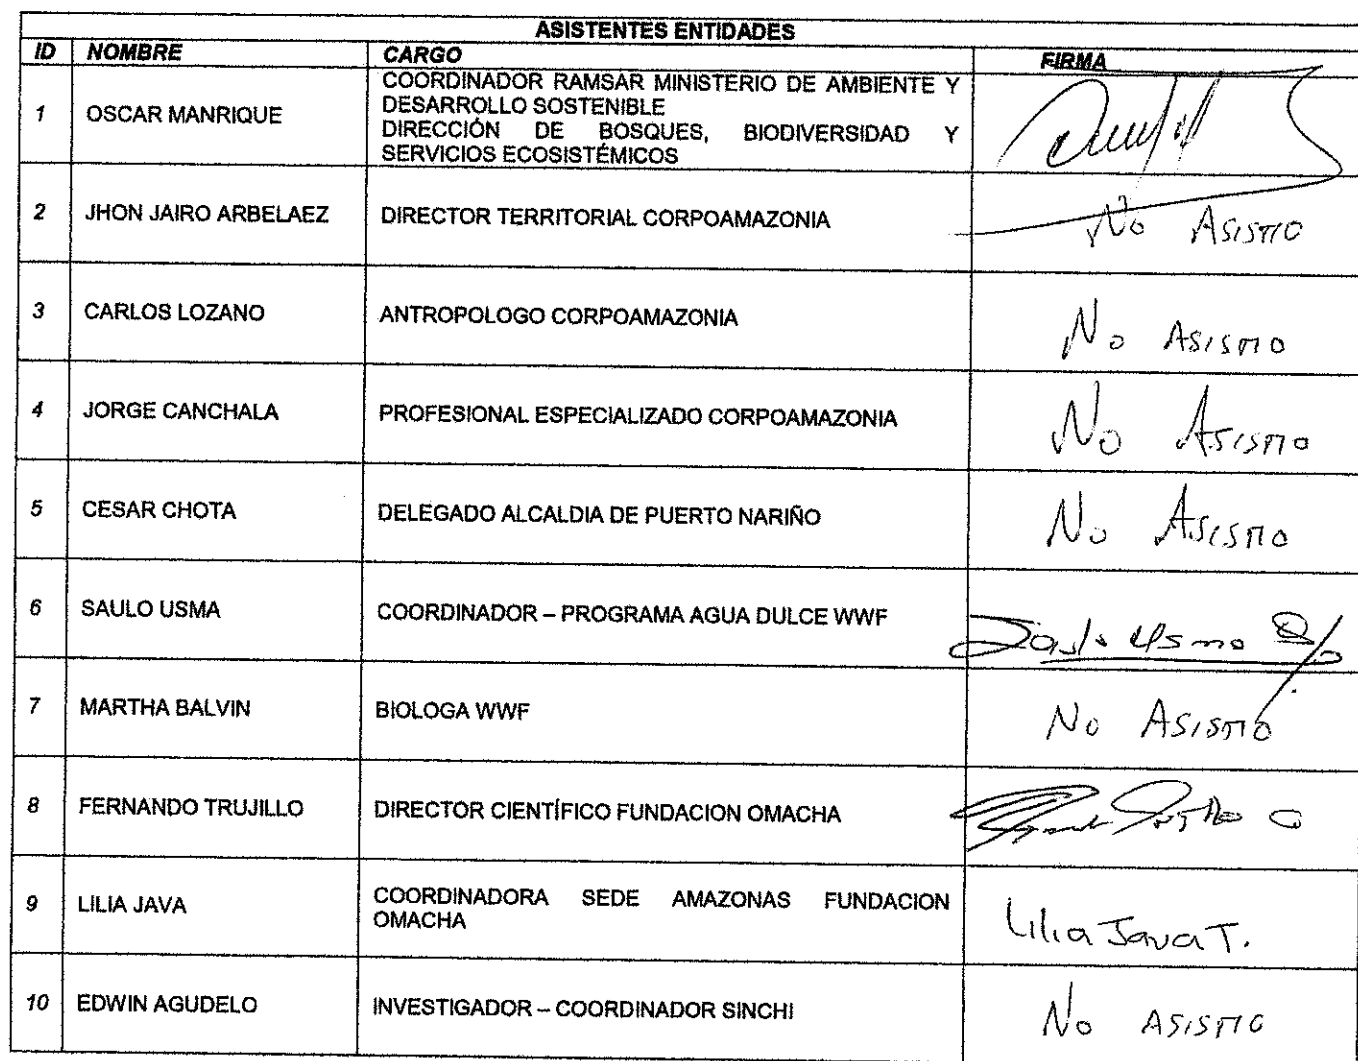 ASISTENTES ENTIDADES
ID NOMBRE CARGO FIRMA
1 OSCAR MANRIQUE COORDINADOR RAMSAR MINISTERIO DE AMBIENTE Y
DESARROLLO SOSTENIBLE
DIRECCIÓN DE BOSQUES, BIODIVERSIDAD Y
SERVICIOS ECOSISTÉMICOS
2 JHON JAIRO ARBELAEZ DIRECTOR TERRITORIAL CORPOAMAZONIA No Asistio
3 CARLOS LOZANO ANTROPOLOGO CORPOAMAZONIA No Asistio
4 JORGE CANCHALA PROFESIONAL ESPECIALIZADO CORPOAMAZONIA No Asistio
5 CESAR CHOTA DELEGADO ALCALDIA DE PUERTO NARIÑO No Asistio
6 SAULO USMA COORDINADOR – PROGRAMA AGUA DULCE WWF Saulo Usma
7 MARTHA BALVIN BIOLOGA WWF No Asistio
8 FERNANDO TRUJILLO DIRECTOR CIENTÍFICO FUNDACION OMACHA
9 LILIA JAVA COORDINADORA SEDE AMAZONAS FUNDACION
OMACHA Lilia Java T.
10 EDWIN AGUDELO INVESTIGADOR – COORDINADOR SINCHI No Asistio